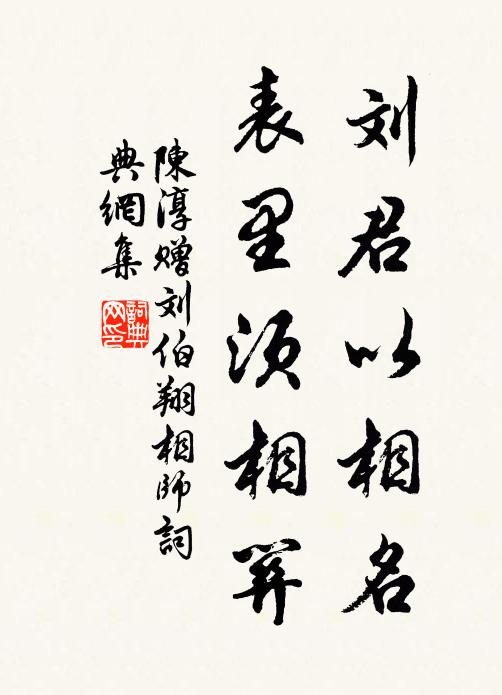 刘君以相名
表里须相
陳淳赠刘伯翔相师詞
典網集
詞典
网印